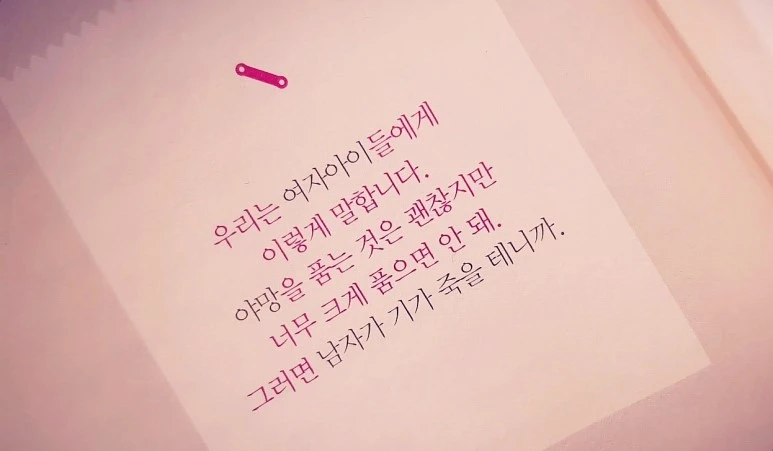 우리는 여자아이들에게
이렇게 말합니다.
야망을 품는 것은 괜찮지만
너무 크게 품으면 안 돼.
그러면 남자가 기가 죽을 테니까.